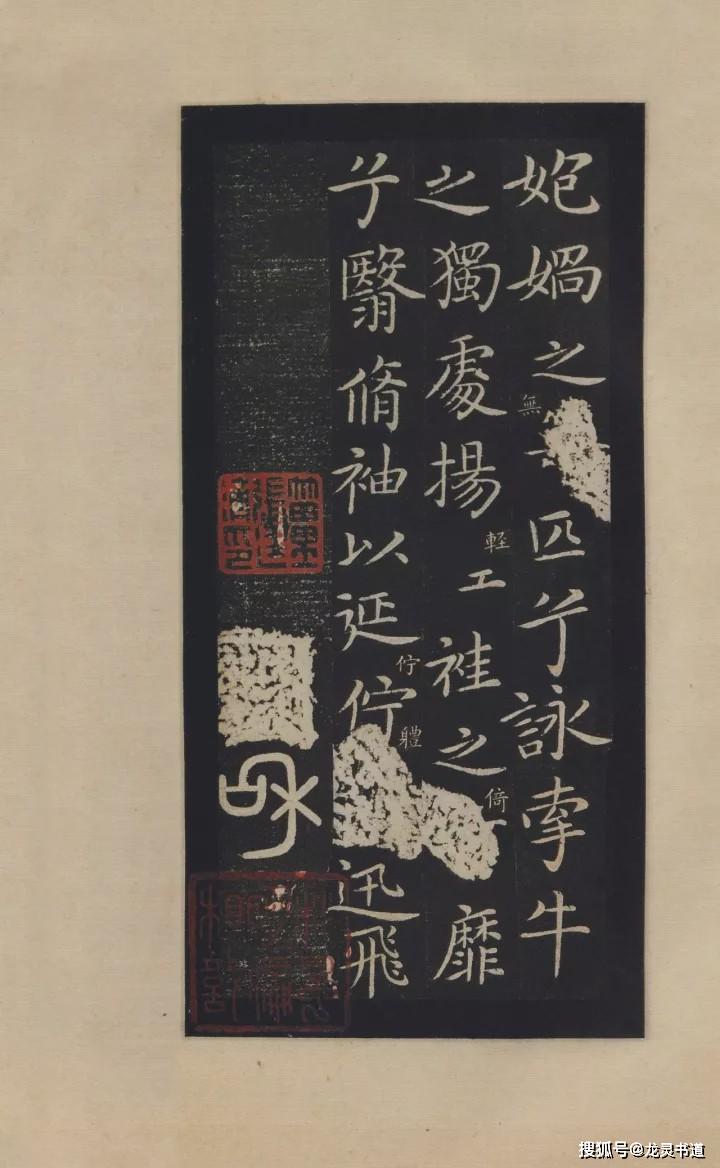 㚿媧之無匹兮詠牽牛
之獨處揚輕袿之倚靡
兮翳脩袖以延佇佇體迅飛
搜狐号@龙灵书道